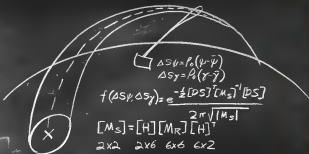 ΔSψ=ρ₀(ψ-ψ̄)
ΔSγ=ρ₀(γ-γ̄)
f(ΔSψ,ΔSγ)=e^(-½[DS]ᵀ[Ms]⁻¹[DS]) / 2π√|Ms|
[Ms]=[H][MR][H]ᵀ
2x2 2x6 6x6 6x2